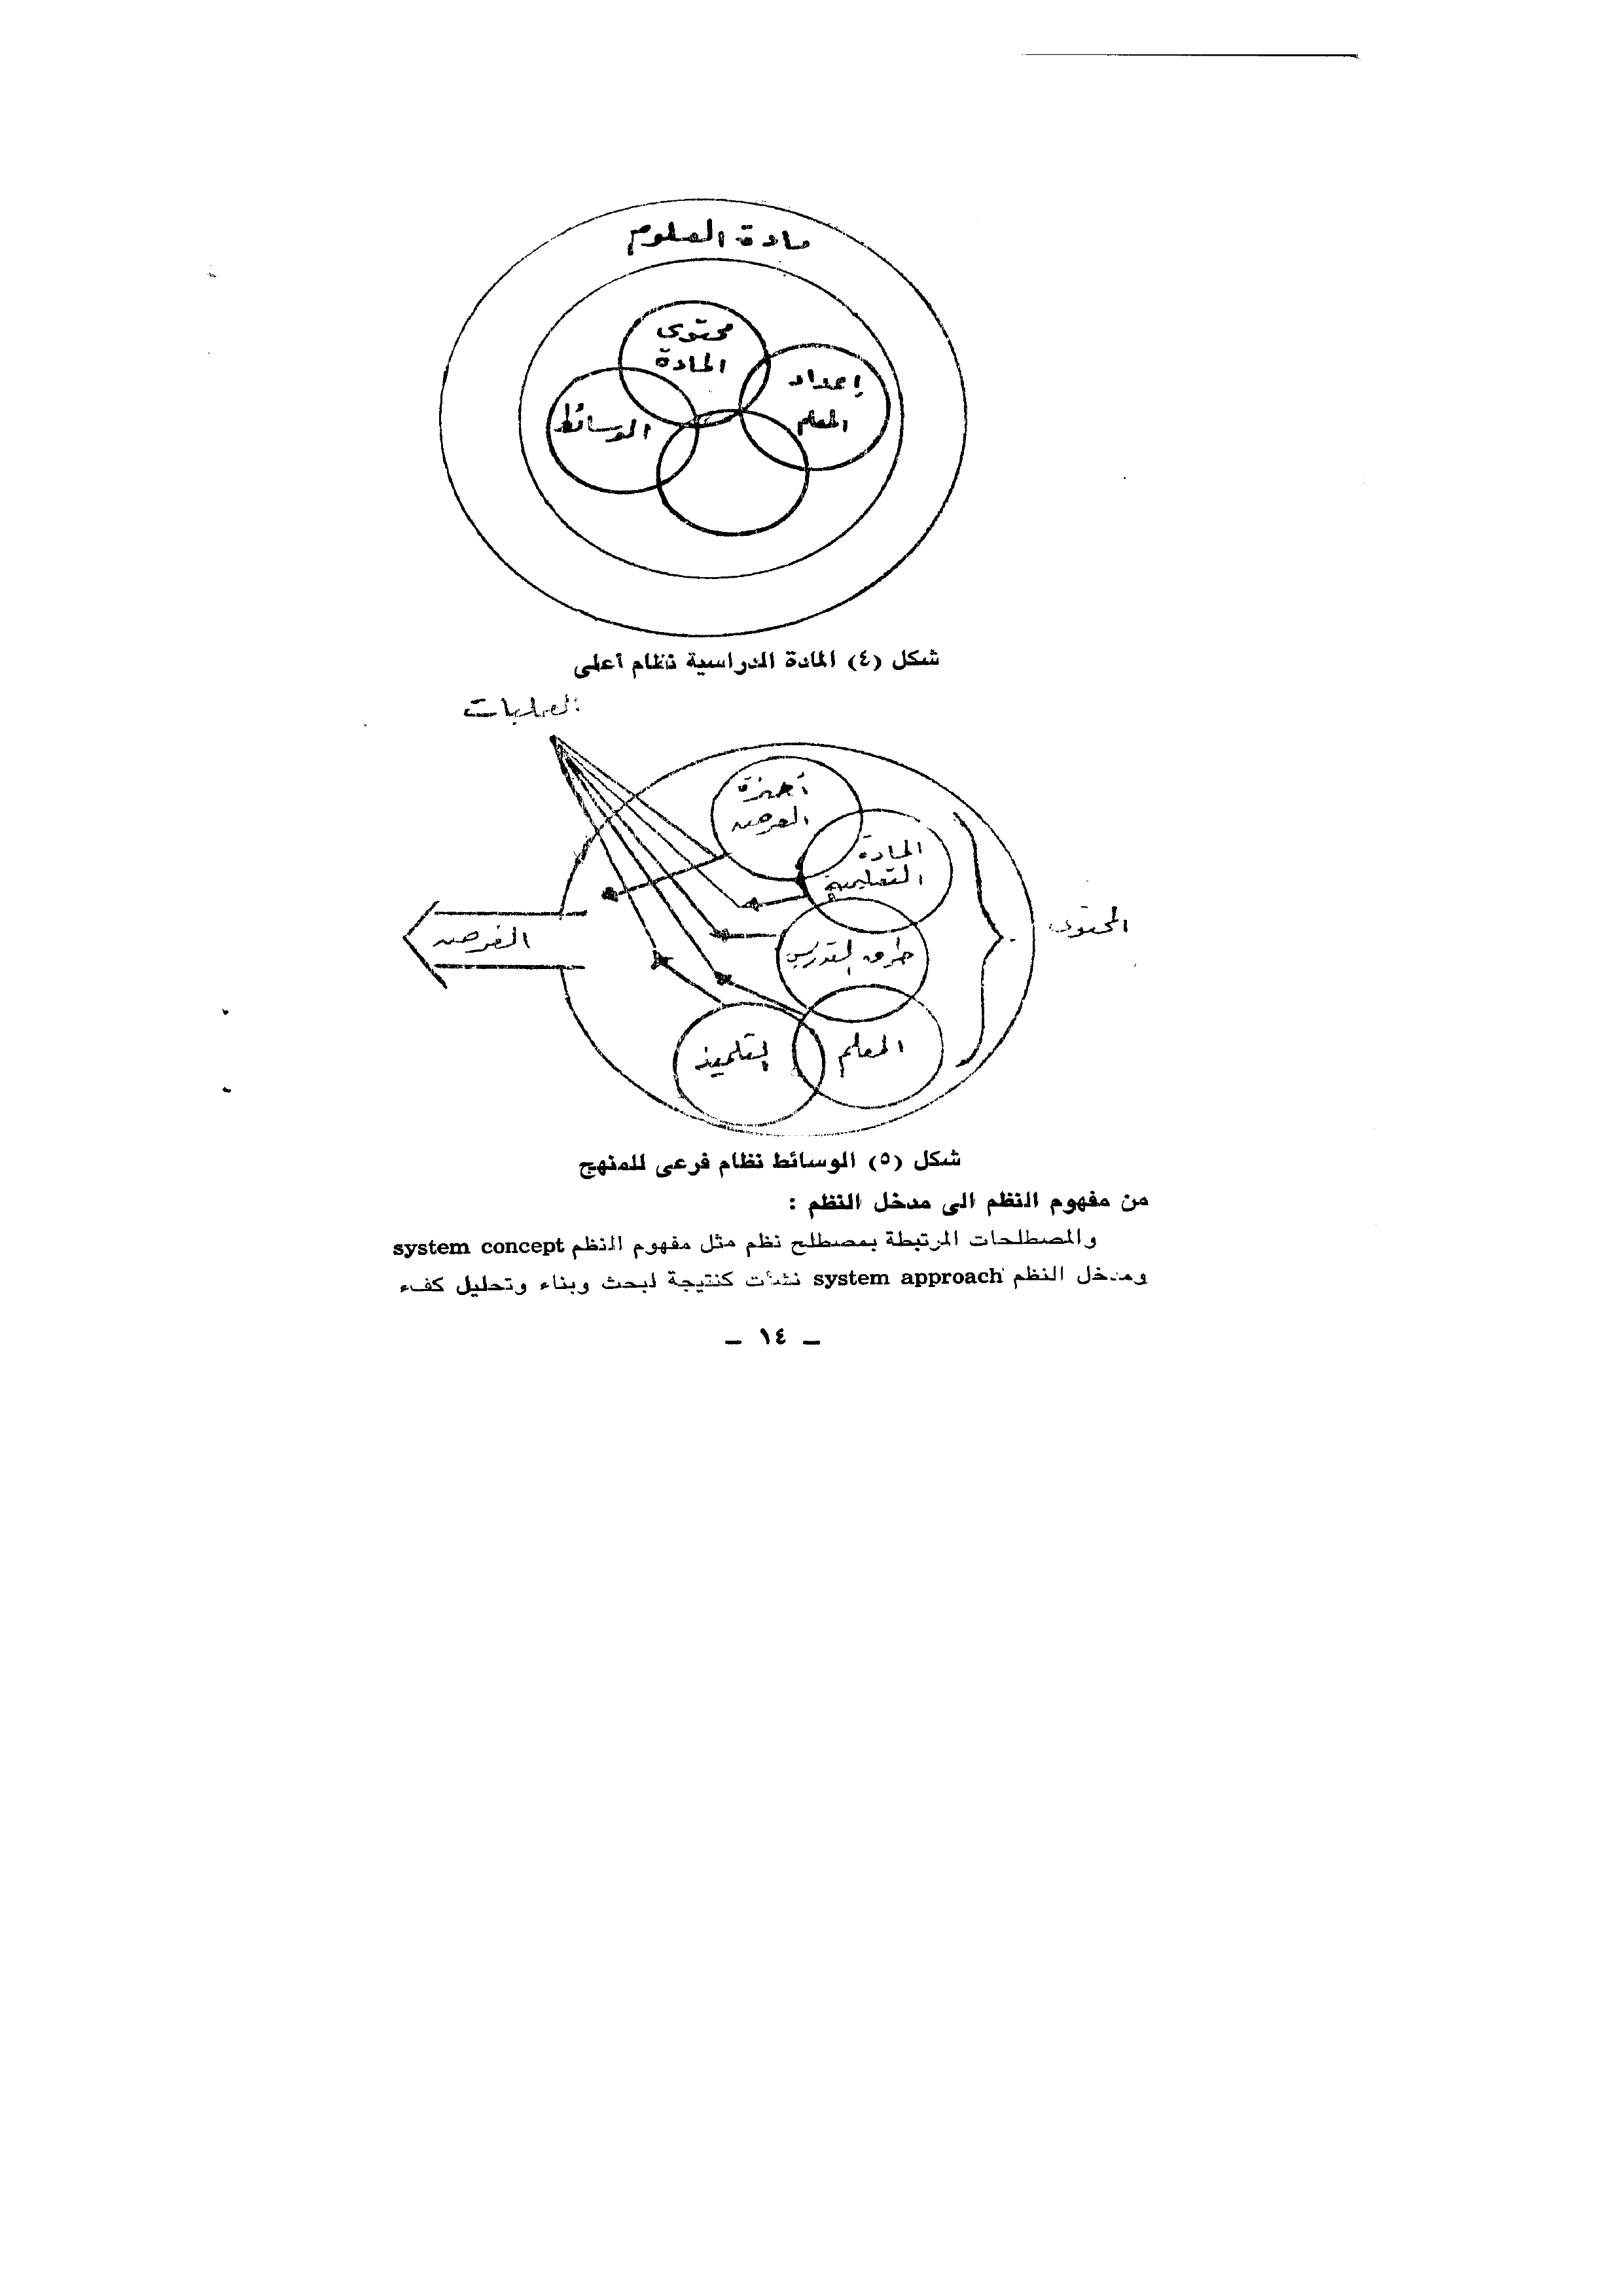 مادة العلوم
محتوى
المادة
إعداد
المعلم
الوسائط
شكل (٤) المادة الدراسية نظام أعلى
العمليات
أجهزة
العرض
المادة
التعليمية
المحتوى
الغرض
طرق التدريس
المعلم
التلميذ
شكل (٥) الوسائط نظام فرعى للمنهج
من مفهوم النظم الى مدخل النظم :
والمصطلحات المرتبطة بمصطلح نظم مثل مفهوم النظم system concept
ومدخل النظم system approach نشأت كنتيجة لبحث وبناء وتحليل كفء
ـ ١٤ ـ